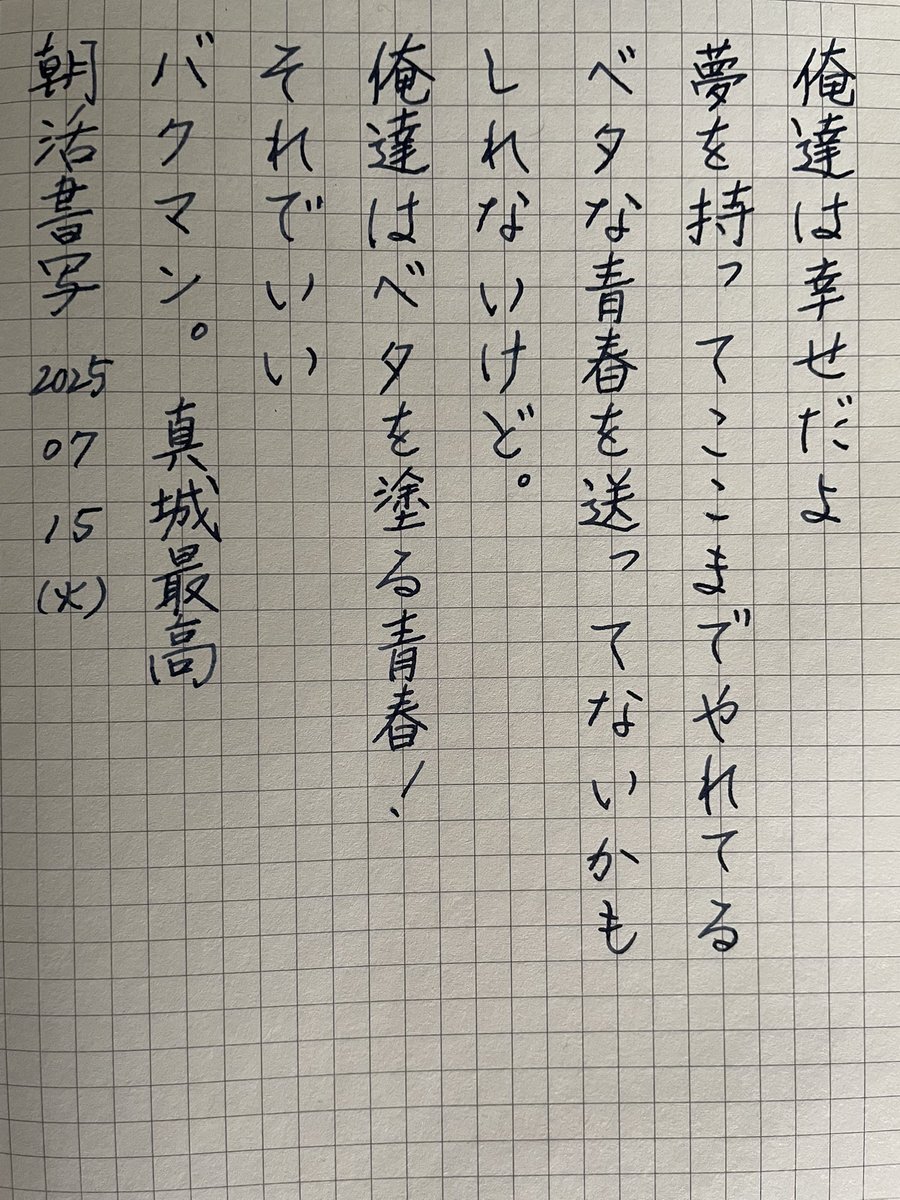 俺達は幸せだよ
夢を持ってここまでやれてる
ベタな青春を送ってないかも
しれないけど。
俺達はベタを塗る青春！
それでいい
バクマン。 真城最高
朝活書写 2025 07 15 (火)